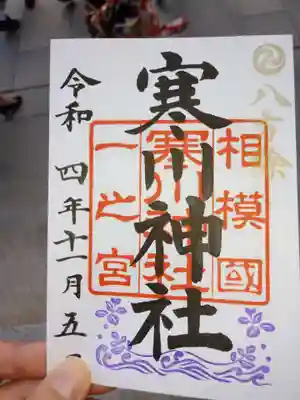 八方除
寒川神社
相模國
寒川神社
一之宮
令和四年十一月五日